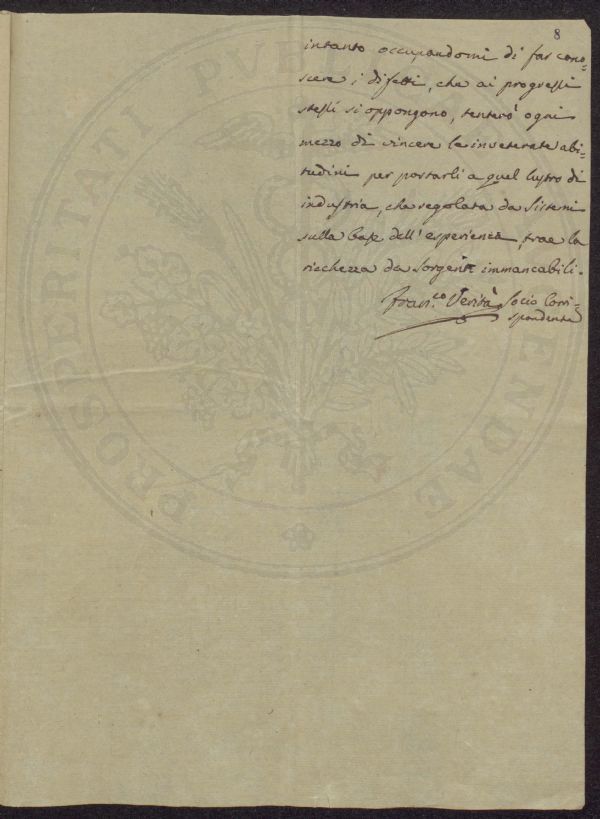 8
intanto occupandomi di far cono=
scere i difetti, che ai progressi
stessi si oppongono, tenterò ogni
mezzo di vincere le inveterate abi=
tudini per portarli a quel lustro di
industria, che regolata da Sistemi
sulla base dell'esperienza, trae la
ricchezza da Sorgenti immancabili.
Fran.co Verità Socio Corri=
spondente
PROSPERITATI PUBL ENDAE